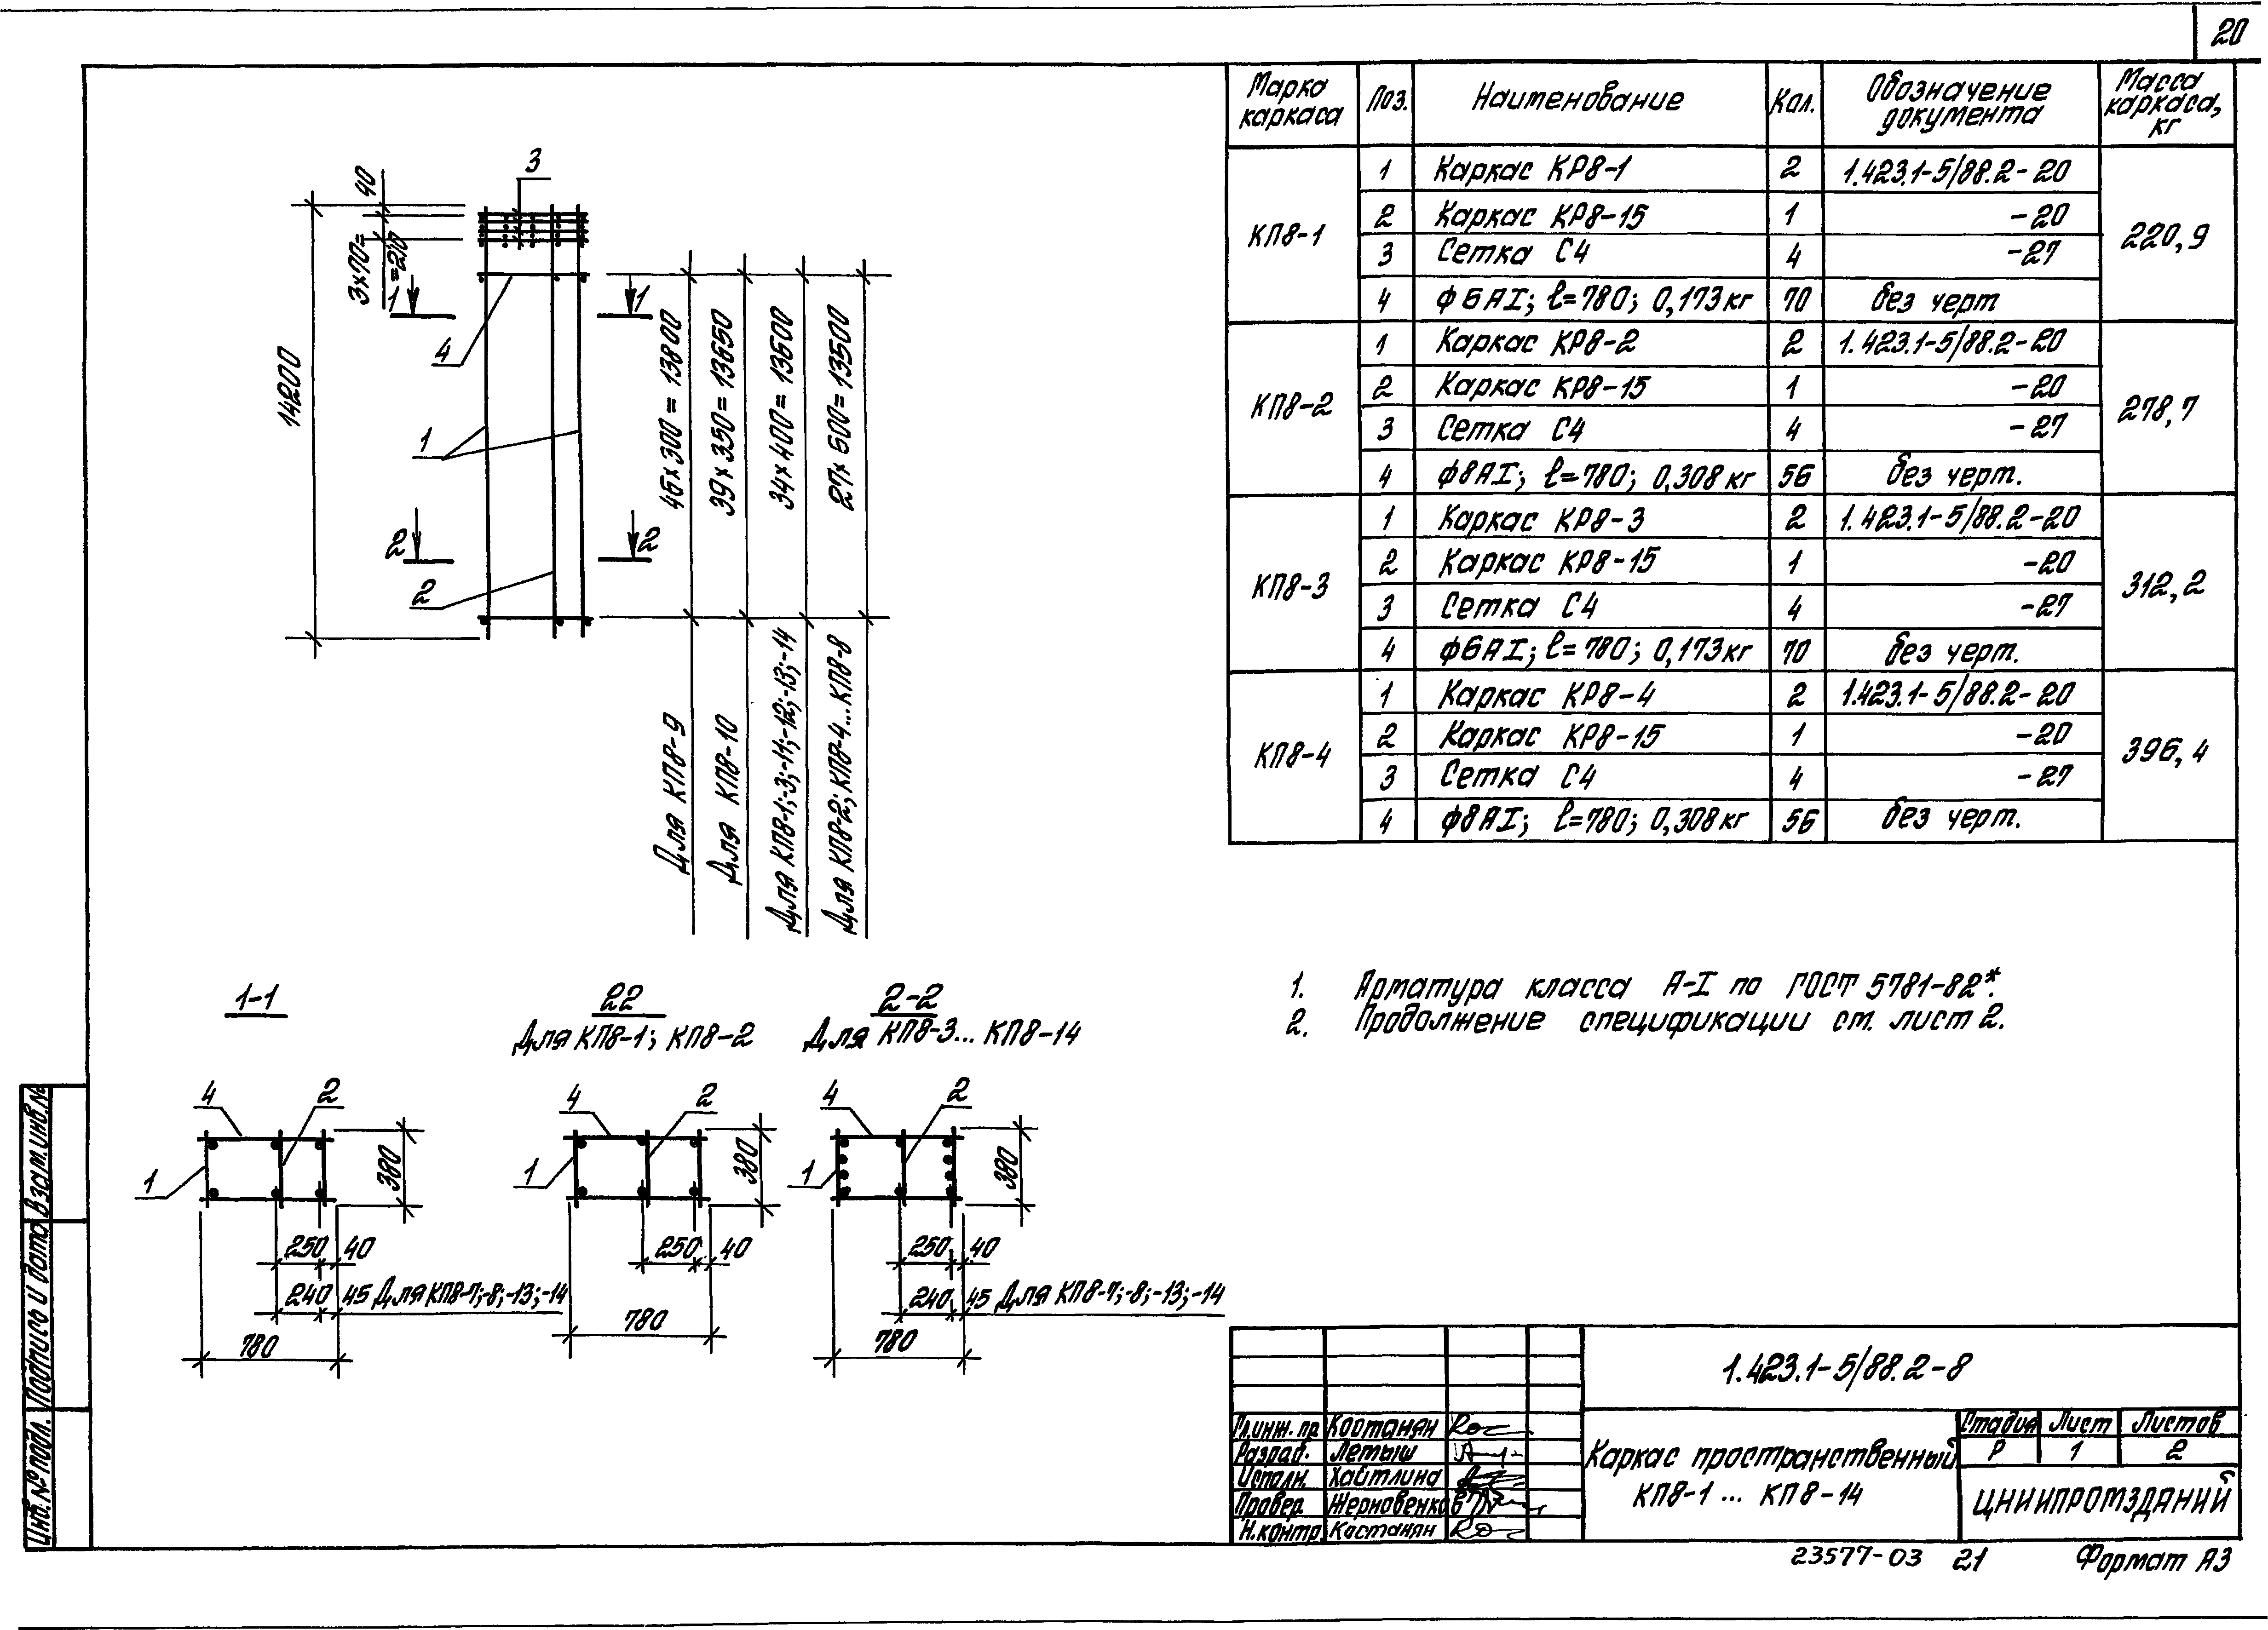 20
Марка каркаса | Поз. | Наименование | Кол. | Обозначение документа | Масса каркаса, кг
КП8-1 | 1 | Каркас КР8-1 | 2 | 1.423.1-5/88.2-20 | 220,9
2 | Каркас КР8-15 | 1 | -20
3 | Сетка С4 | 4 | -27
4 | ф6АI; ℓ=780; 0,173кг | 70 | без черт
КП8-2 | 1 | Каркас КР8-2 | 2 | 1.423.1-5/88.2-20 | 278,7
2 | Каркас КР8-15 | 1 | -20
3 | Сетка С4 | 4 | -27
4 | ф8АI; ℓ=780; 0,308кг | 56 | без черт.
КП8-3 | 1 | Каркас КР8-3 | 2 | 1.423.1-5/88.2-20 | 312,2
2 | Каркас КР8-15 | 1 | -20
3 | Сетка С4 | 4 | -27
4 | ф6АI; ℓ=780; 0,173кг | 70 | без черт.
КП8-4 | 1 | Каркас КР8-4 | 2 | 1.423.1-5/88.2-20 | 396,4
2 | Каркас КР8-15 | 1 | -20
3 | Сетка С4 | 4 | -27
4 | ф8АI; ℓ=780; 0,308кг | 56 | без черт.
3
40
3×70=
=210
14200
1 1
4
1
2 2
2
46×300=13800
39×350=13650
34×400=13600
27×500=13500
Для КП8-9
Для КП8-10
Для КП8-1;-3;-11;-12;-13;-14
Для КП8-2; КП8-4...КП8-8
1-1
4 2
1
380
250 40
240 45 Для КП8-7;-8;-13;-14
780
22
Для КП8-1; КП8-2
4 2
1
380
250 40
780
2-2
Для КП8-3... КП8-14
4 2
1
380
250 40
240 45 Для КП8-7;-8;-13;-14
780
1. Арматура класса А-I по ГОСТ 5781-82*.
2. Продолжение спецификации см. лист 2.
Взам.инв.№
Подпись и дата
Инв.№ подл.
1.423.1-5/88.2-8
Гл.инж.пр Костанян
Разраб. Летыш
Исполн. Хайтлина
Провер. Жерновенков
Н.контр. Костанян
Каркас пространственный
КП8-1 ... КП8-14
Стадия Лист Листов
Р 1 2
ЦНИИПРОМЗДАНИЙ
23577-03 21
Формат А3